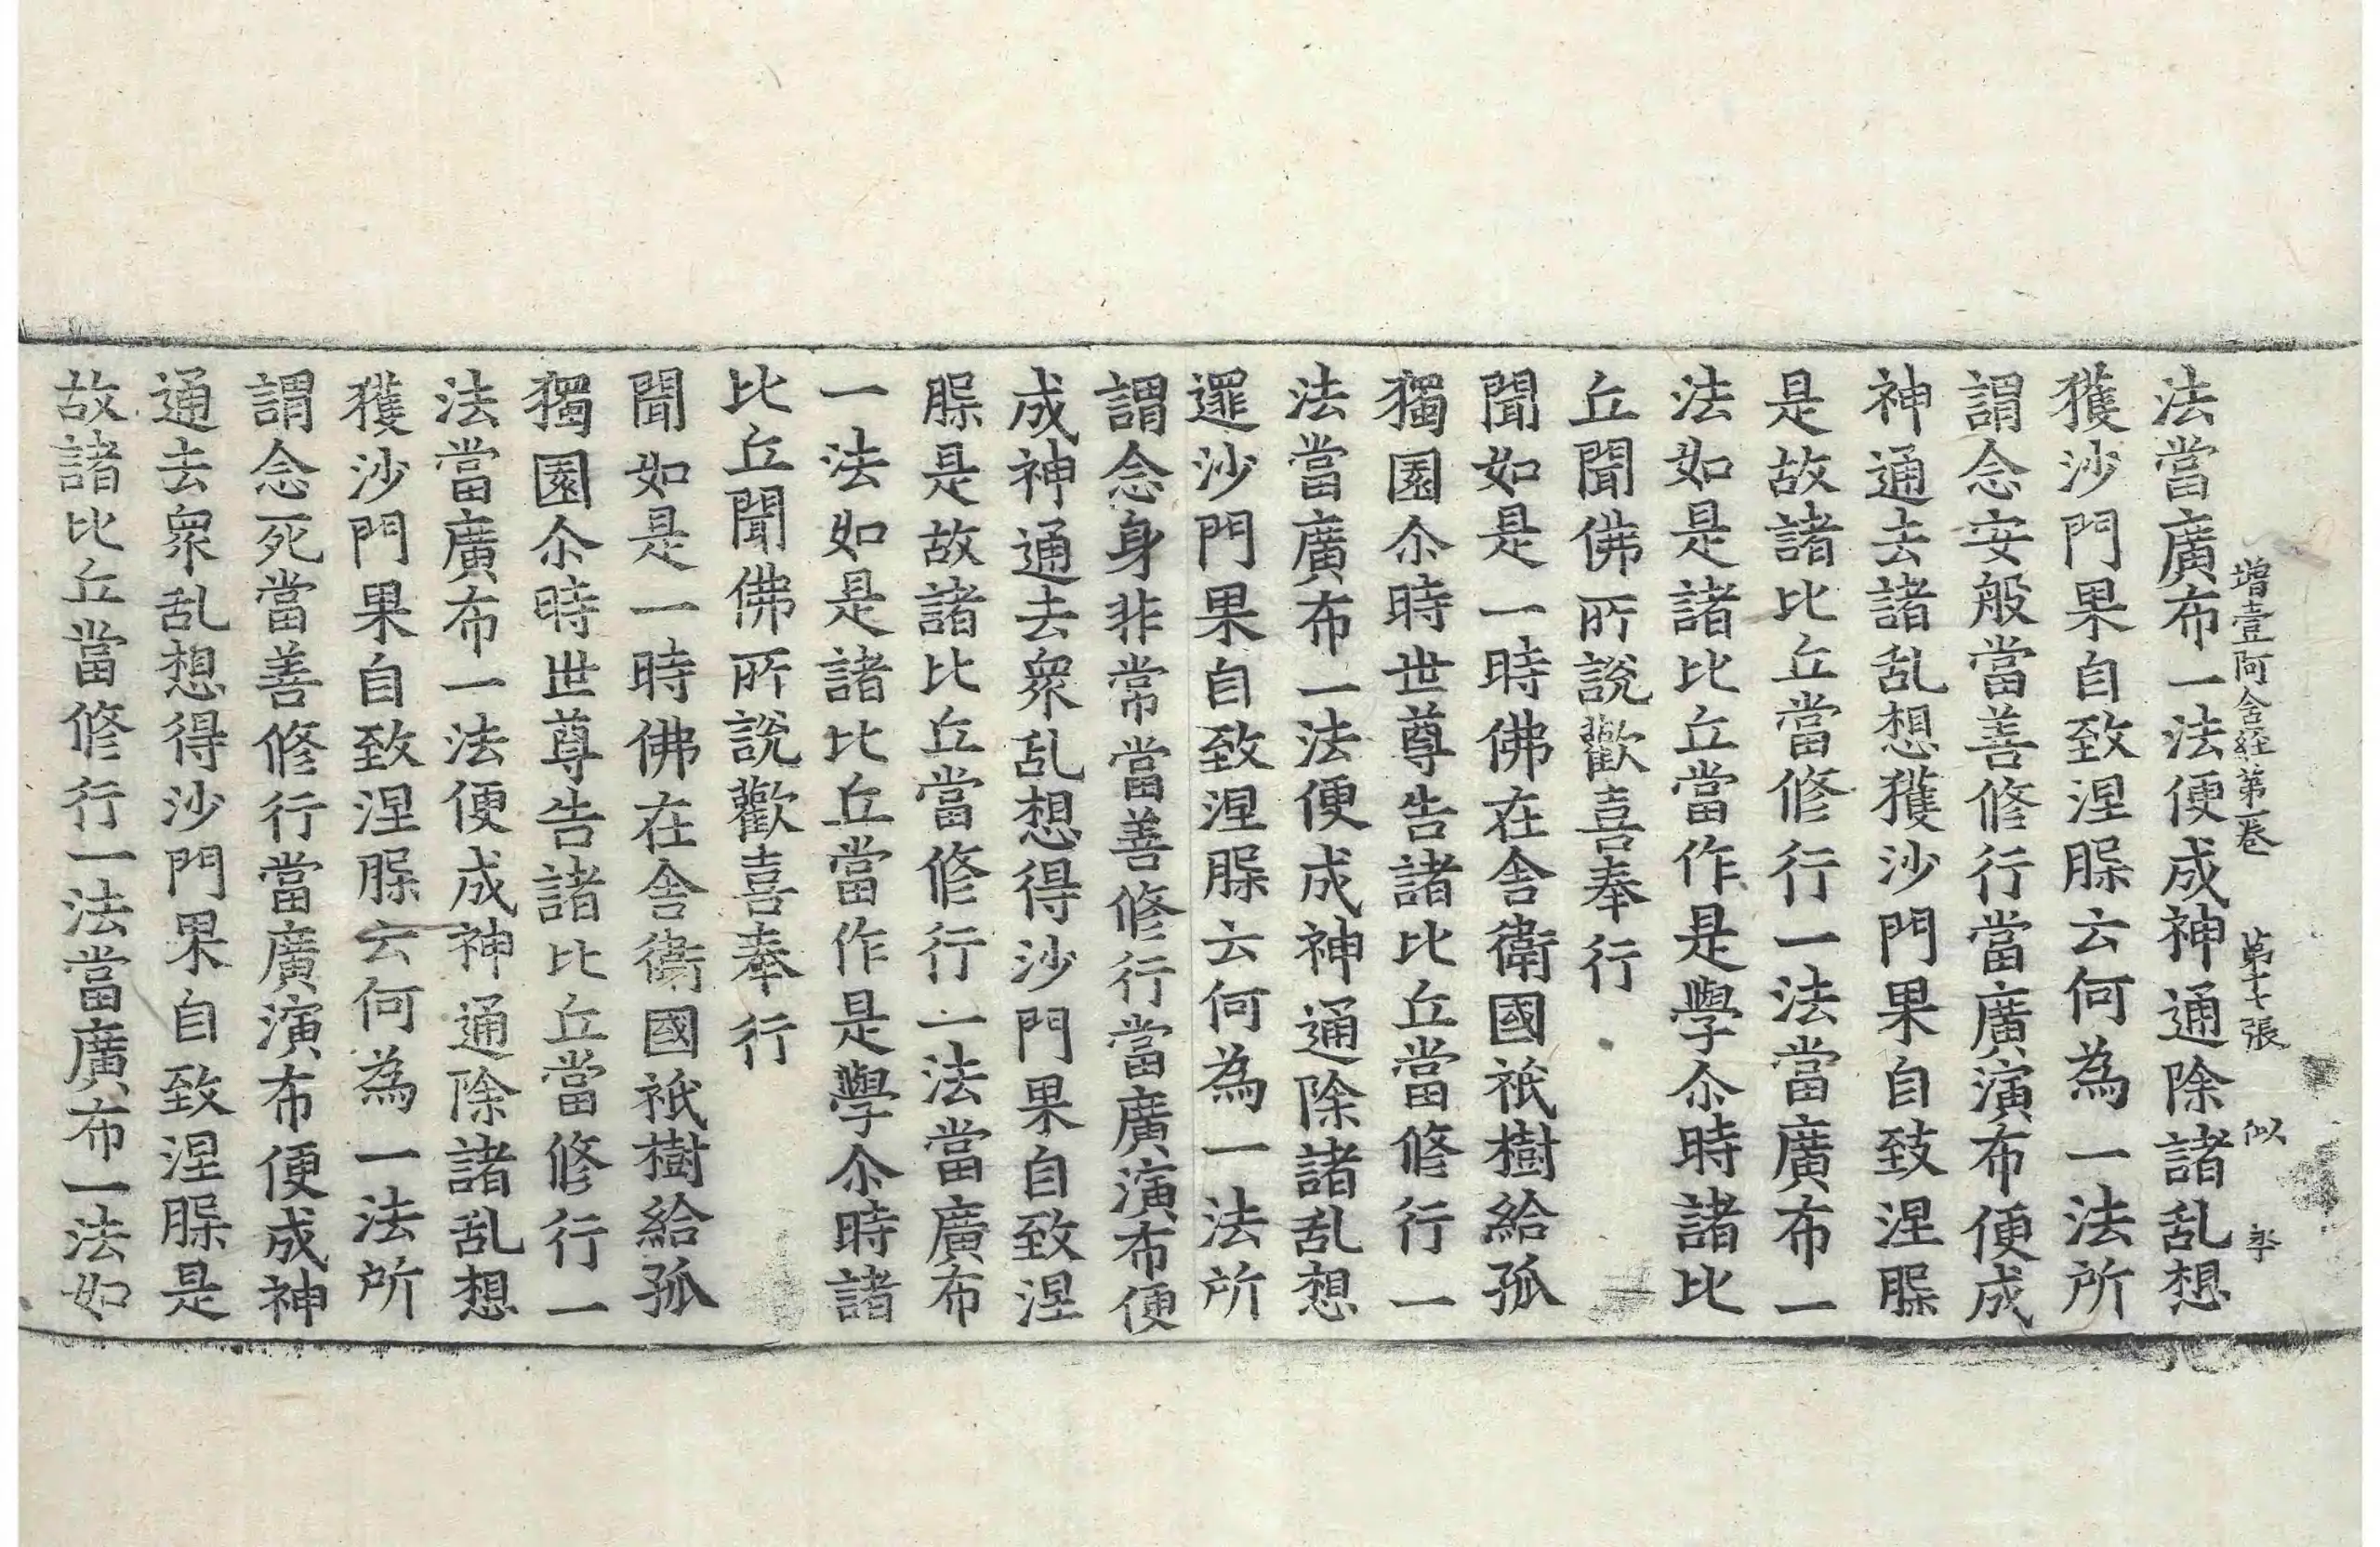 增壹阿含経第一卷　第十七張　似
法當廣布一法便成神通除諸乱想
獲沙門果自致涅槃云何為一法所
謂念安般當善修行當廣演布便成
神通去諸乱想獲沙門果自致涅槃
是故諸比丘當修行一法當廣布一
法如是諸比丘當作是學尒時諸比
丘聞佛所說歡喜奉行
聞如是一時佛在舍衛國祇樹給孤
獨園尒時世尊告諸比丘當修行一
法當廣布一法便成神通除諸乱想
逻沙門果自致涅槃云何為一法所
謂念身非常當善修行當廣演布便
成神通去衆乱想得沙門果自致涅
槃是故諸比丘當修行一法當廣布
一法如是諸比丘當作是學尒時諸
比丘聞佛所說歡喜奉行
聞如是一時佛在舍衛國祇樹給孤
獨園尒時世尊告諸比丘當修行一
法當廣布一法便成神通除諸乱想
獲沙門果自致涅槃云何為一法所
謂念死當善修行當廣演布便成神
通去衆乱想得沙門果自致涅槃是
故諸比丘當修行一法當廣布一法如